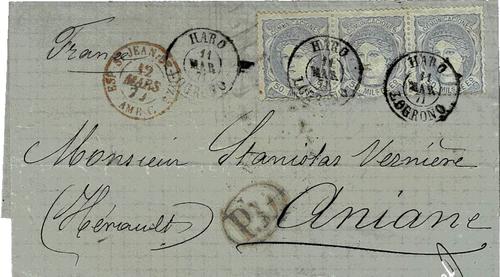 France
HARO
11
MAR
71
LOGROÑO
HARO
11
MAR
71
HARO
11
MAR
71
LOGROÑO
ESP. ST JEAN-DE-LUZ
12
MARS
71
AMB. C.
50 MILS
MILS
MILS
Monsieur Stanislas Vernière
(Hérault) Aniane
P.31